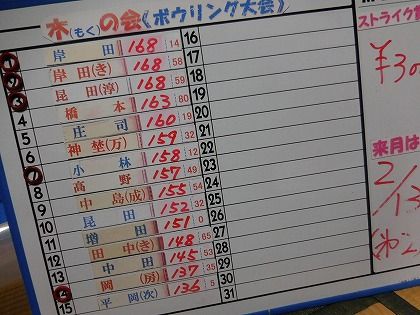 木(もく)の会《ボウリング大会》
岸田 168 14 16
岸田(き) 168 58 17
昆田(淳) 168 59 18
橋本 163 80 19
5 庄司 160 19 20
6 神埜(万) 159 32 21
小林 158 12 22
8 高野 157 49 23
9 中島(成) 155 54 24
10 昆田 152 32 25
11 増田 151 0 26
12 田中(き) 148 65 27
13 中田 145 53 28
岡(房) 137 35 29
15 平岡(次) 136 5 30
31
ストライク
¥30
来月は
2/13